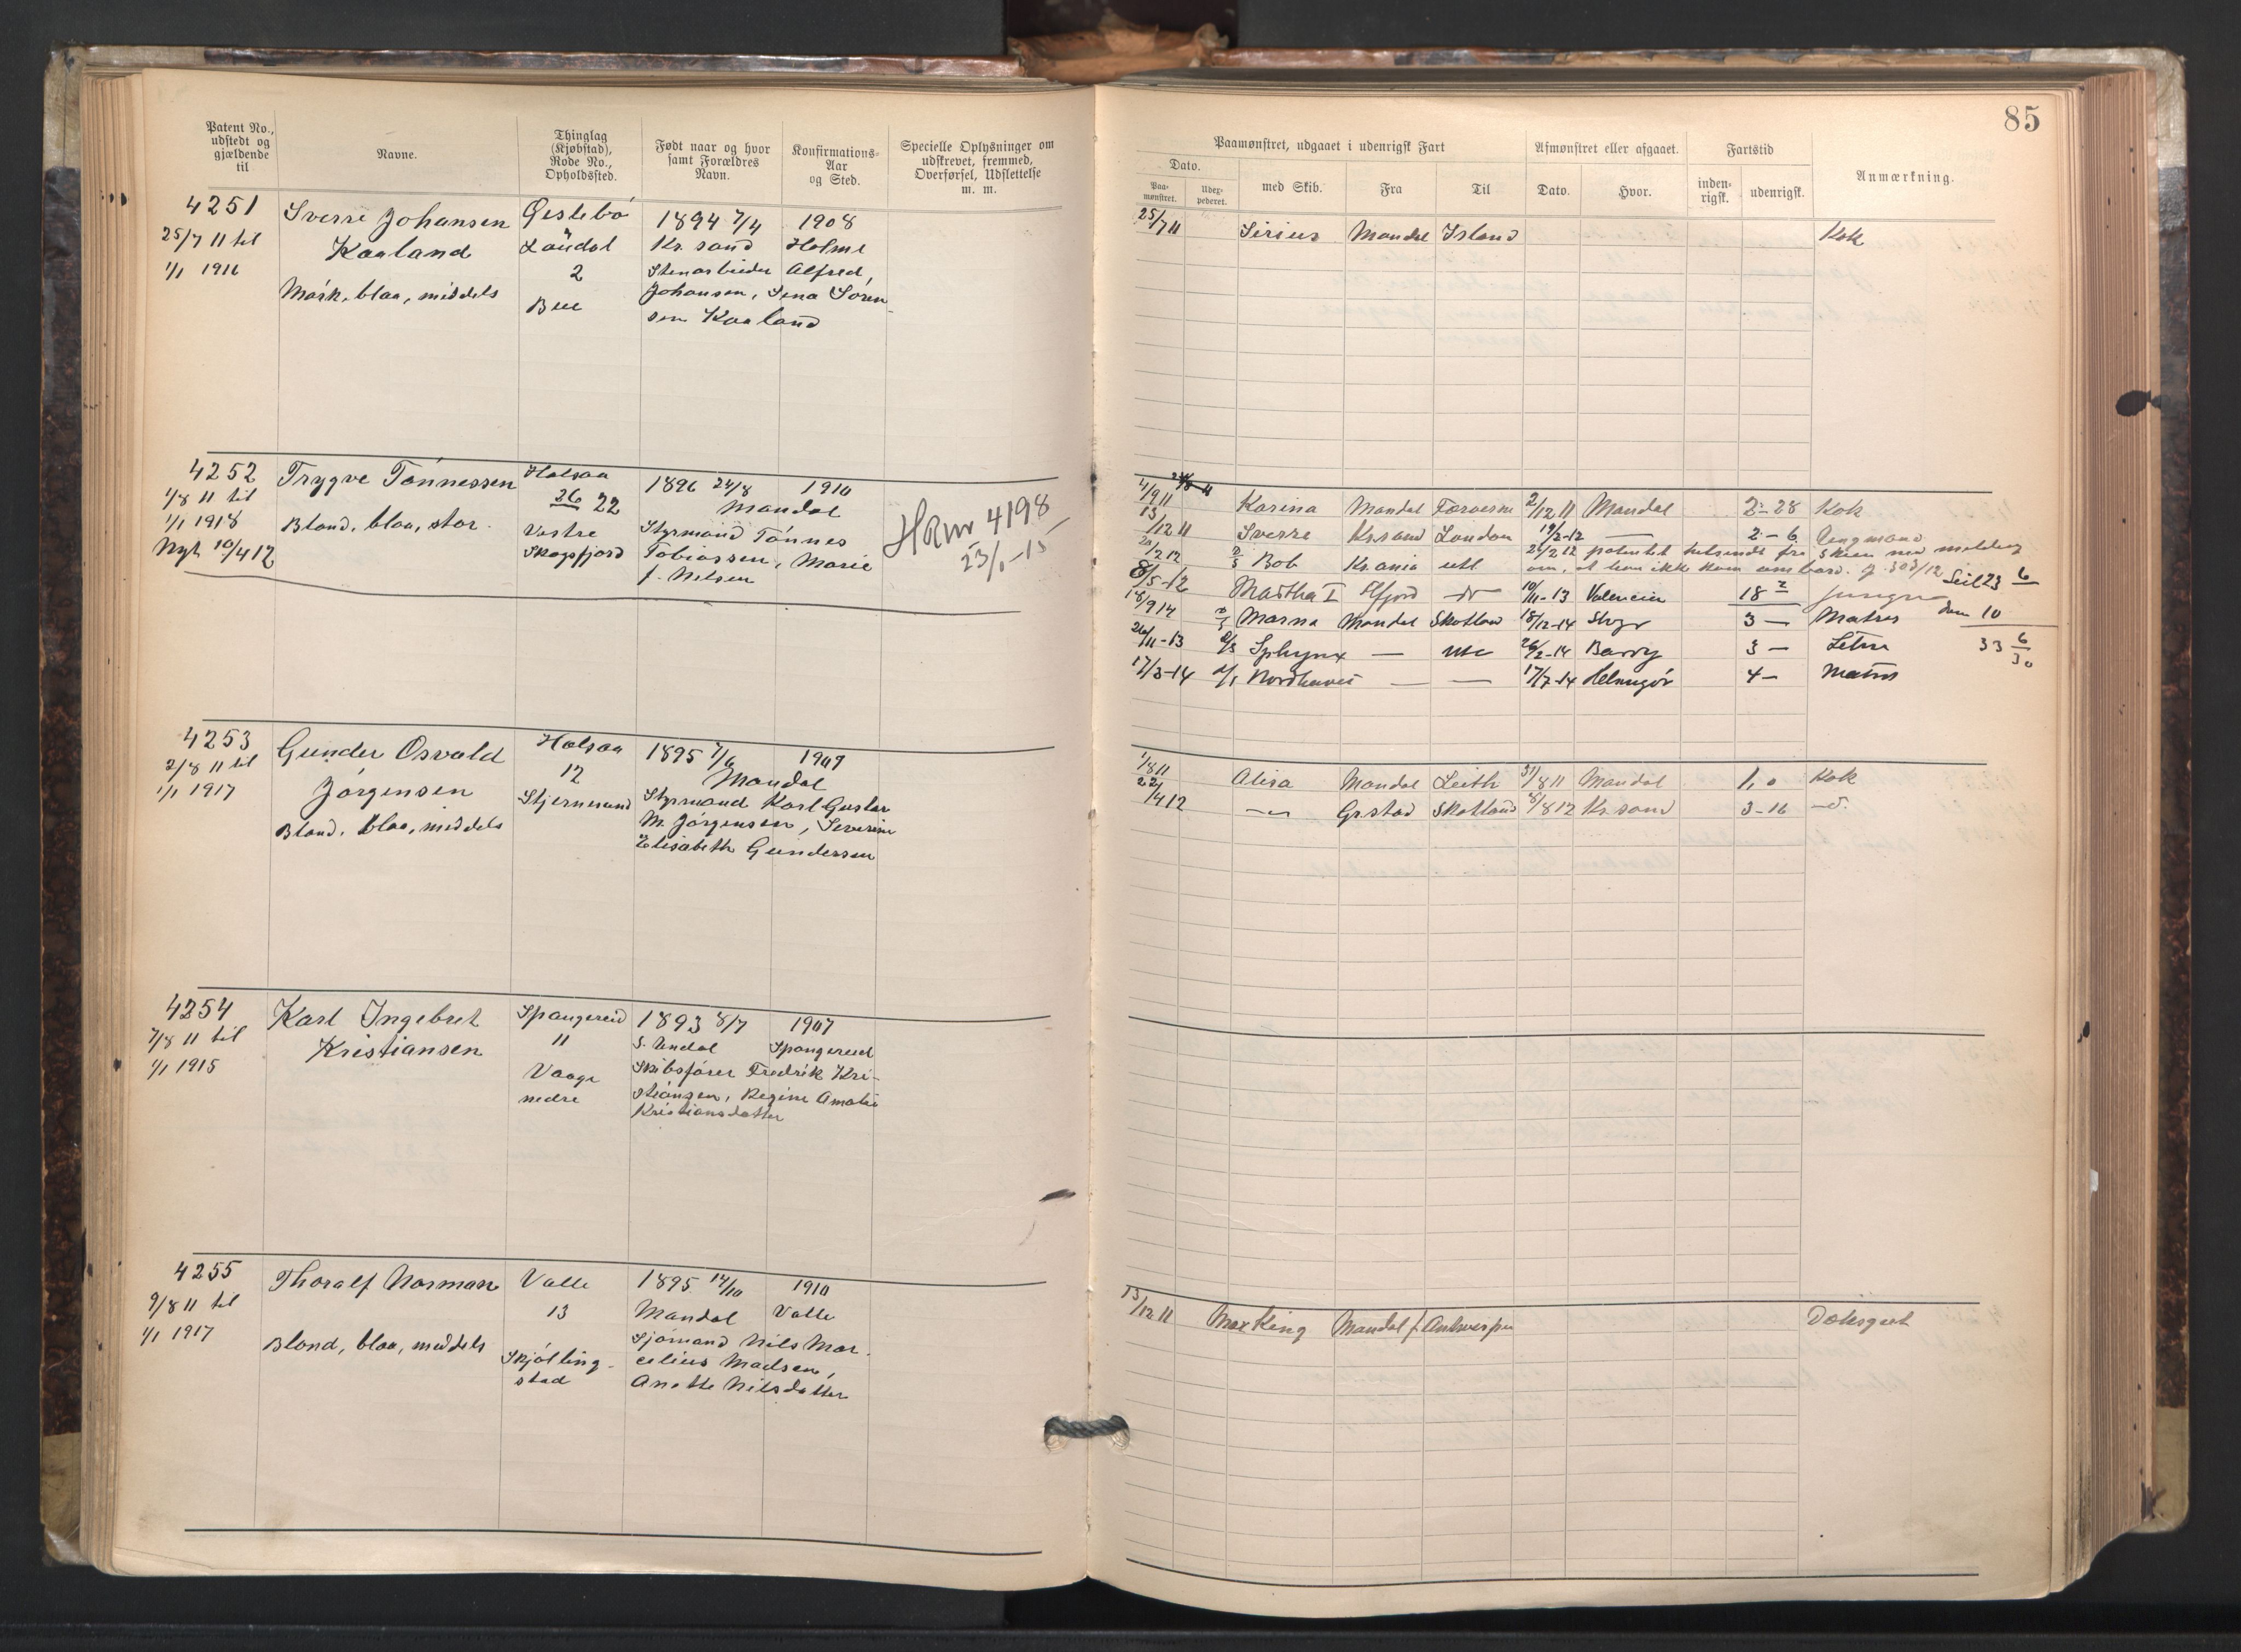 85
Patent No., udstedt og gjældende til
Navne.
Thinglag (Kjøbstad), Rode No., Opholdssted.
Født naar og hvor samt Forældres Navn.
Konfirmations-Aar og Sted.
Specielle Oplysninger om udskrevet, fremmed, Overførsel, Udslettelse m. m.
Paamønstret, udgaaet i udenrigsk Fart
Afmønstret eller afgaaet.
Fartstid
Anmærkning.
Dato.
Paamønstret.
med Skib.
Fra
Til
Dato.
Hvor.
indenrigsk.
udenrigsk.
4251
25/7 11 til
1/1 1916
Sverre Johansen
Kaaland
Mörk, blaa, middels
Löudal
2
Bue
1894 7/4
Kr. sand
1908
Holme
Stenarbeider Alfred
Johansen, Sena Sören-
sen Kaaland
25/7 11 Sirius Mandal Island Kok
4252
1/8 11 til
1/1 1918
Nyt 10/4 12
Trygve Tönnessen
Blond, blaa, stor.
Halsaa
26 22
Vestre
Skogsfjord
1896 24/8 1910
Mandal
Styrmand Tönnes
Tobiassen, Marie
f. Nilsen
4198
23/1-15
4/9 11 Karina Mandal 2/12 11 Mandal 2-28 Kok
13/12 11 Sverre Kr.sand London 19/2-12 — 2-6 Jungmand
Bob Kr.ania utl.
om, at han ikke kom ombord.
8/5-12 Martha I 10/11-13 Valencia 18
18/9 14 Marna Mandal 18/12-14 3 — Matros
26/11-13 Sphynx — 26/2-14 Barry 3 —
17/3-14 — — 17/7-14 Helsingør 4 —
4253
2/8 11 til
1/1 1917
Gunder Osvald
Jörgensen
Blond, blaa, middels
Halsaa
12
Stjernesund
1895 7/6 1909
Mandal
Styrmand Karl Gustav
M. Jörgensen, Severine
Elisabeth Gundersen
1/8 11 Alisa Mandal Leith 31/8 11 Mandal 1,0 Kok
22/4 12 Gr.stad Skotland 8/8 12 Kr. sand 3-16
4254
7/8 11 til
1/1 1915
Karl Ingebret
Kristiansen
Spangereid
11
Vaage
nedre
1893 8/7
S. Undal
1907
Spangereid
Skibsförer Fredrik Kri-
stiansen, Regine Amalie
Kristiansdatter
4255
9/8 11 til
1/1 1917
Thoralf Norman
Blond, blaa, middels
Valle
13
Skjölling-
stad
1895 14/10
Mandal
1910
Valle
Sjömand Nils Mar-
celius Madsen,
Anette Nilsdatter
13/12 11 Max King Mandal f. Antwerpen Dæksgut